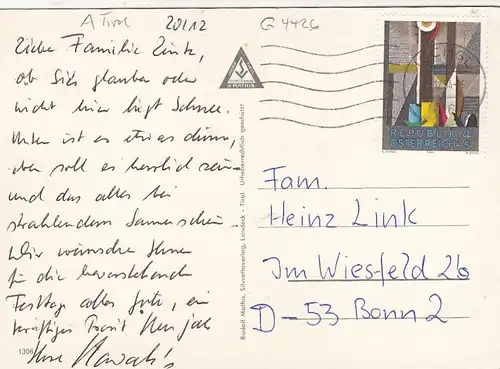 A Tirol
20/12
G 4426
Liebe Familie Link,
ob Sie's glauben oder
nicht hier liegt Schnee.
Unten ist es etwas dünn,
oben soll es herrlich sein -
und das alles bei
strahlendem Sonnenschein.
Wir wünschen Ihnen
für die bevorstehenden
Festtage alles Gute, ein
kräftiges Prosit Neujahr
Ihre
1306
R. MATHIS
Rudolf Mathis, Silvrettaverlag, Landeck - Tirol Urheberrechtlich geschützt
REPUBLIK 4
ÖSTERREICH S
Fam.
Heinz Link
Im Wiesfeld 26
D-53 Bonn 2